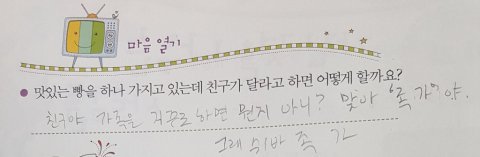 마음 열기
맛있는 빵을 하나 가지고 있는데 친구가 달라고 하면 어떻게 할까요?
친구야 가족을 거꾸로 하면 뭔지 아니? 맞아 "족 가"야.
그래 쉬바 족 가